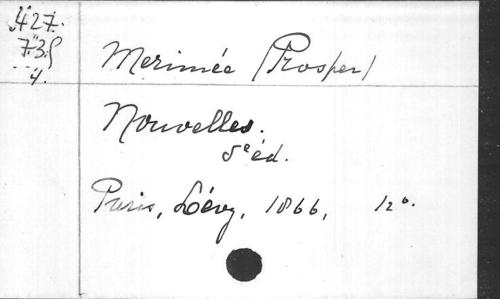 427.
Merimée (Prosper)
Nouvelles.
5e éd.
Paris, Lévy, 1866, 12°.